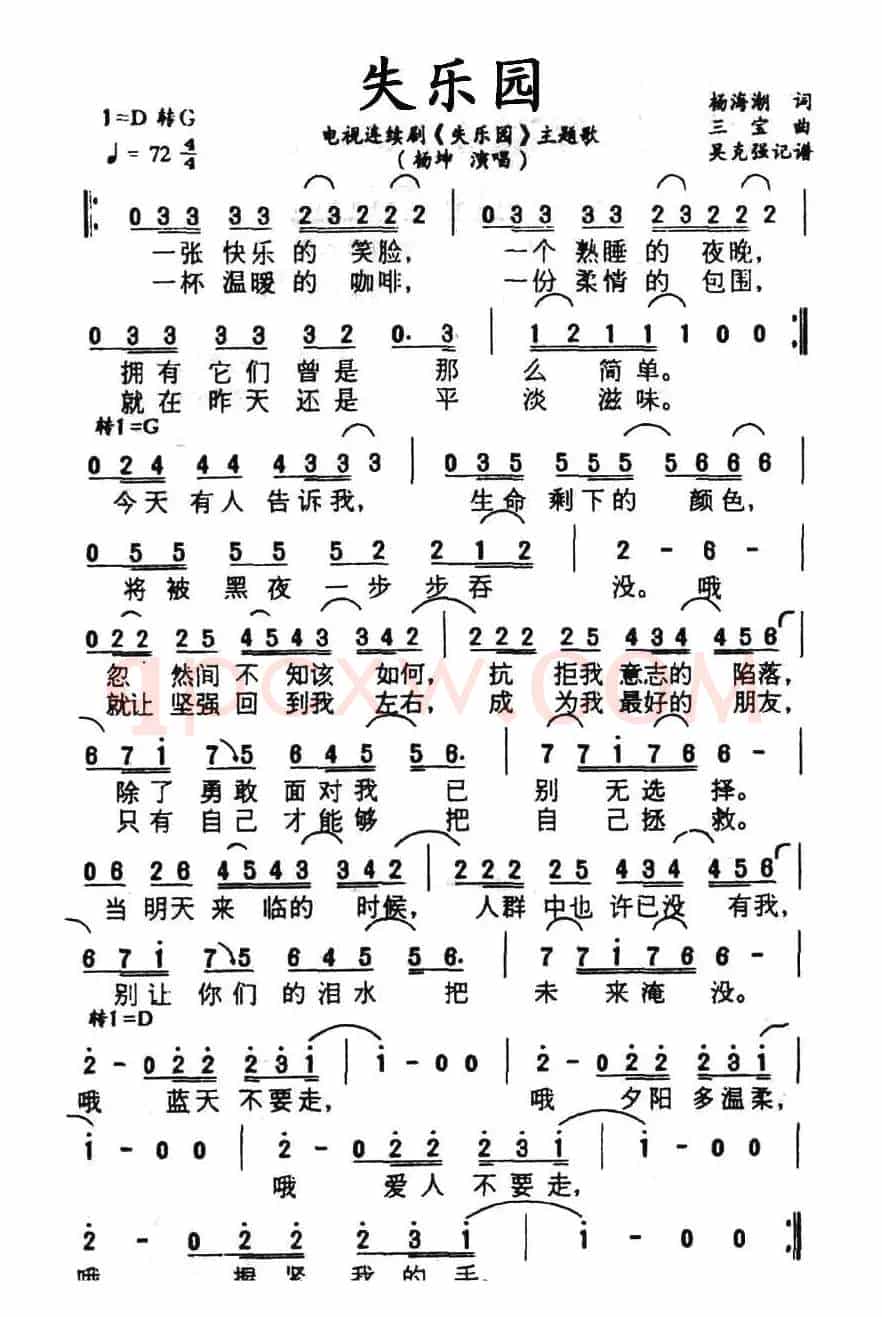 失乐园
1=D 转G
♩= 72 4/4
电视连续剧《失乐园》主题歌
（杨坤 演唱）
杨海潮 词
三 宝 曲
吴克强记谱
0 3 3 3 3 2 3 2 2 2 | 0 3 3 3 3 2 3 2 2 2
一张 快乐 的 笑脸， 一个 熟睡 的 夜晚，
一杯 温暖 的 咖啡， 一份 柔情 的 包围，
0 3 3 3 3 3 2 0. 3 | 1 2 1 1 1 0 0
拥有 它们 曾是 那 么 简单。
就在 昨天 还是 平 淡 滋味。
转1=G
0 2 4 4 4 4 3 3 3 | 0 3 5 5 5 5 5 6 6 6
今天 有人 告诉我， 生命 剩下的 颜色，
0 5 5 5 5 5 2 2 1 2 | 2 - 6 -
将被 黑夜 一步 步吞 没。哦
0 2 2 2 5 4 5 4 3 3 4 2 | 2 2 2 2 5 4 3 4 4 5 6
忽 然间 不 知该 如何， 抗 拒我 意志的 陷落，
就让 坚强 回 到我 左右， 成 为我 最好的 朋友，
6 7 1 7 5 6 4 5 5 6. | 7 7 1 7 6 6 -
除了 勇敢 面对我 已 别 无选 择。
只有 自己 才能够 把 自 己拯 救。
0 6 2 6 4 5 4 3 3 4 2 | 2 2 2 2 5 4 3 4 4 5 6
当 明天 来 临的 时候， 人群 中也 许已没 有我，
6 7 1 7 5 6 4 5 5 6. | 7 7 1 7 6 6 -
别让 你们 的泪水 把 未 来淹 没。
转1=D
2 - 0 2 2 2 3 1 | 1 - 0 0 | 2 - 0 2 2 2 3 1
哦 蓝天 不要走， 哦 夕阳 多温柔，
1 - 0 0 | 2 - 0 2 2 2 3 1 | 1 - 0 0
哦 爱人 不要走，
2 - 0 2 2 2 3 1 | 1 - 0 0
哦 握紧 我的手。
qpcxw.com